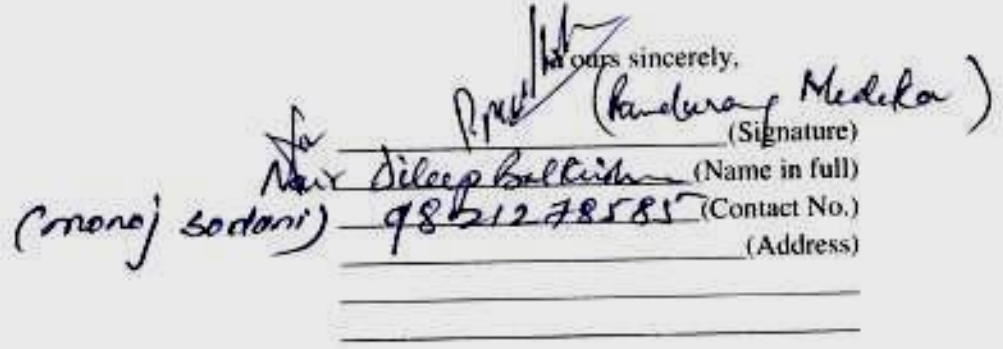 Yours sincerely,
(Pandurang Medekar)
(Signature)
for
Nair Dileep Balkrishna (Name in full)
(manoj sodani) 9821278585 (Contact No.)
(Address)